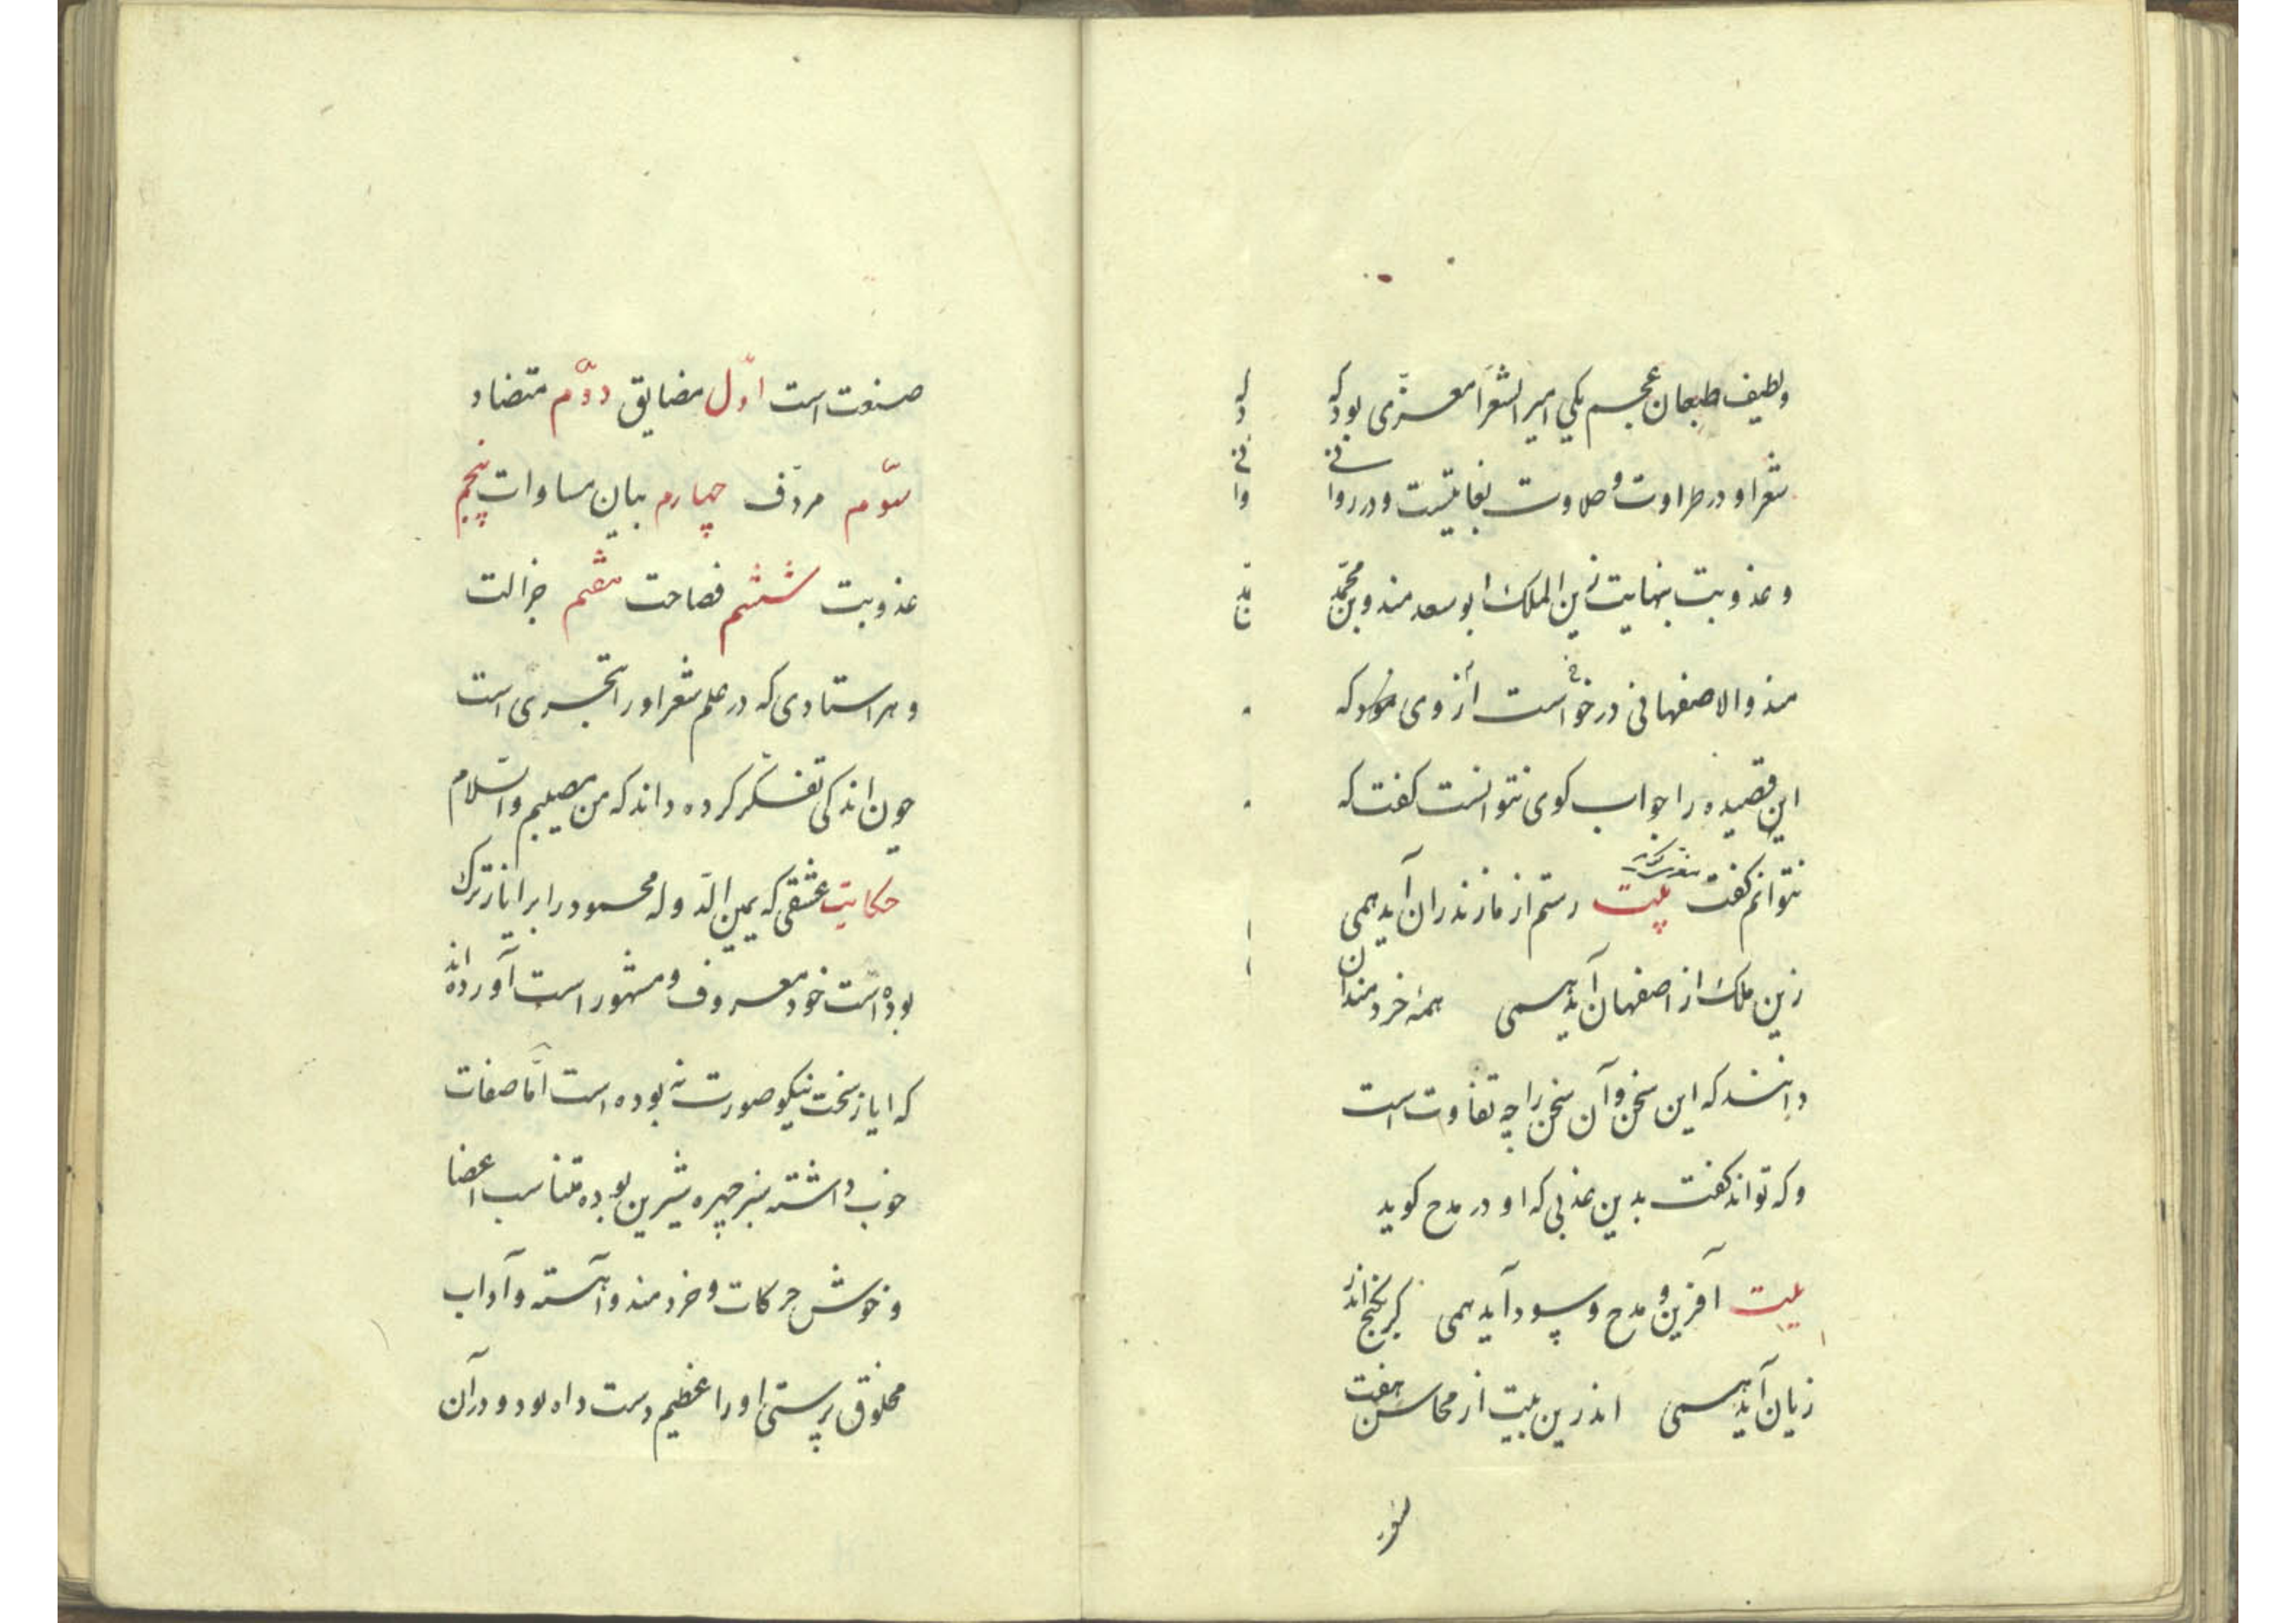 ولطیف طبعان عجم یکی امیر الشعرا معزّی بود که
شعر او در طراوت و حلاوت بغایتست و در روانی
و عذوبت بنهایت زین الملک ابو سعد هندو بن محمّد
هندو الاصفهانی درخواست از وی نمود که
این قصیده را جواب کوی نتوانست کفت که
نتوانم کفت بیت رستم از مازندران آید همی
زین ملک از اصفهان آید همی همه خردمندان
دانند که این سخن و آن سخن را چه تفاوت است
و که تواند کفت بدین عذبی که او در مدح کوید
بیت آفرین و مدح و سود آید همی کر بکنج اندر
زیان آید همی اندرین بیت از محاسن هفت
صنعت است اوّل مضایق دوّم متضاد
سوّم مردّف چهارم بیان مساوات پنجم
عذوبت ششم فصاحت هفتم جزالت
و هر استادی که در علم شعر او را تبحری است
چون اندکی تفکّر کرده داند که من مصیبم والسّلام
حکایت عشقی که یمین الدّوله محمود را بر ایاز ترک
بوده است خود معروف و مشهور است آورده اند
که ایاز سخت نیکو صورت نه بوده است امّا صفات
خوب داشته سبز چهره شیرین بوده متناسب اعضا
و خوش حرکات و خردمند و آهسته و آداب
مخلوق پرستی او را عظیم دست داه بود و در آن